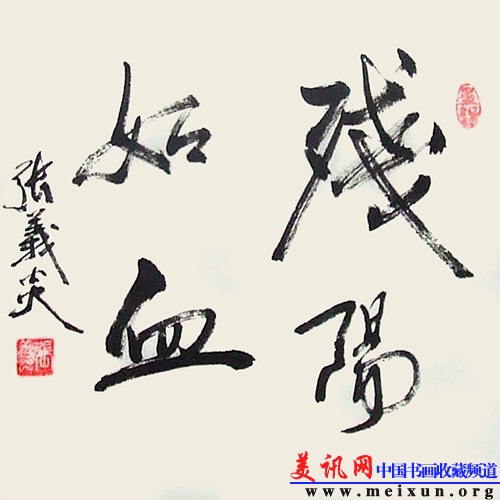 殘陽
如血
張義炎
美讯网 中国书画收藏频道
www.meixun.org